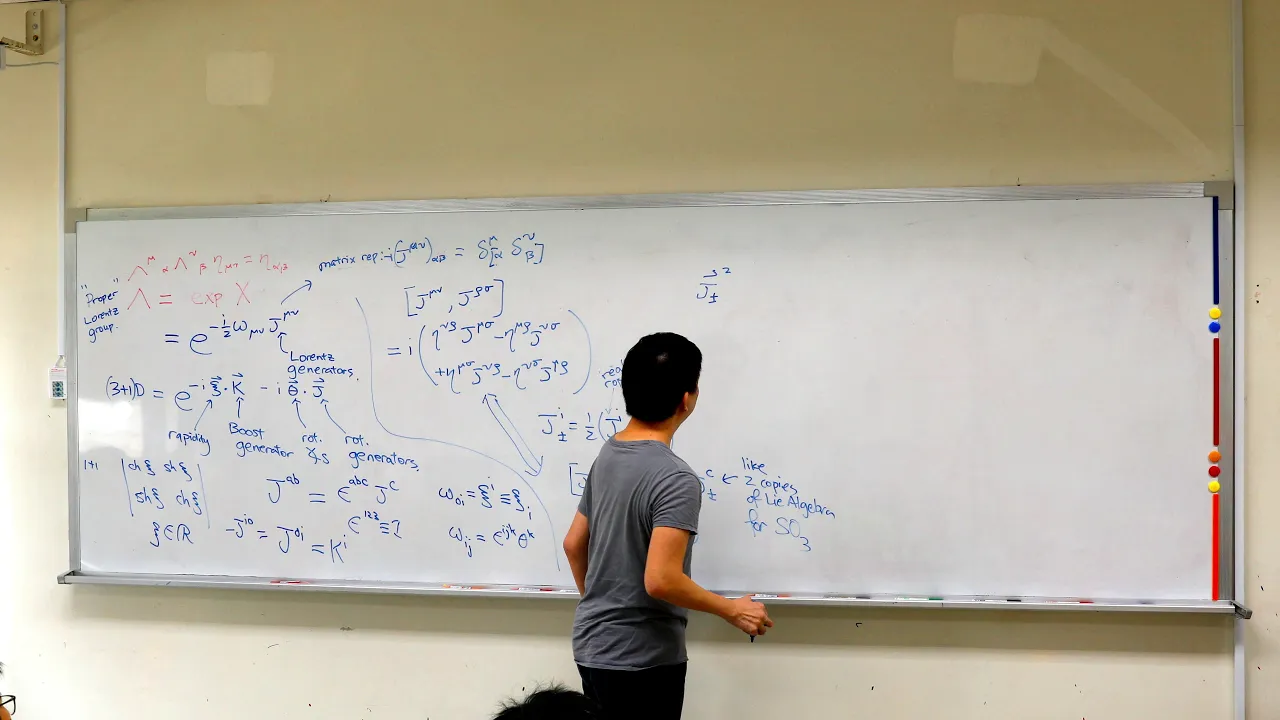 Λ^μ_α Λ^ν_β η_μν = η_αβ
"Proper" Lorentz group.
Λ = exp X
= e^{-i/2 ω_μν J^μν}
Lorentz generators.
(3+1)D = e^{-i ξ⃗·K⃗ - i θ⃗·J⃗}
rapidity
Boost generator
rot. ∡s
rot. generators.
1+1
chξ shξ
shξ chξ
ξ∈ℝ
J^ab = ε^abc J^c
-J^i0 = J^0i = K^i
ε^123 ≡ 1
ω_0i = ξ^i ≡ ξ_i
ω_ij = ε^ijk θ^k
matrix rep: -i(J^μν)_αβ = δ^μ_[α δ^ν_β]
[J^μν, J^ρσ]
= i(η^νρ J^μσ - η^μρ J^νσ
+η^μσ J^νρ - η^νσ J^μρ)
J^i_± = 1/2 (J^i
[J
c
±
← like
2 copies
of Lie Algebra
for SO_3
J⃗²_±